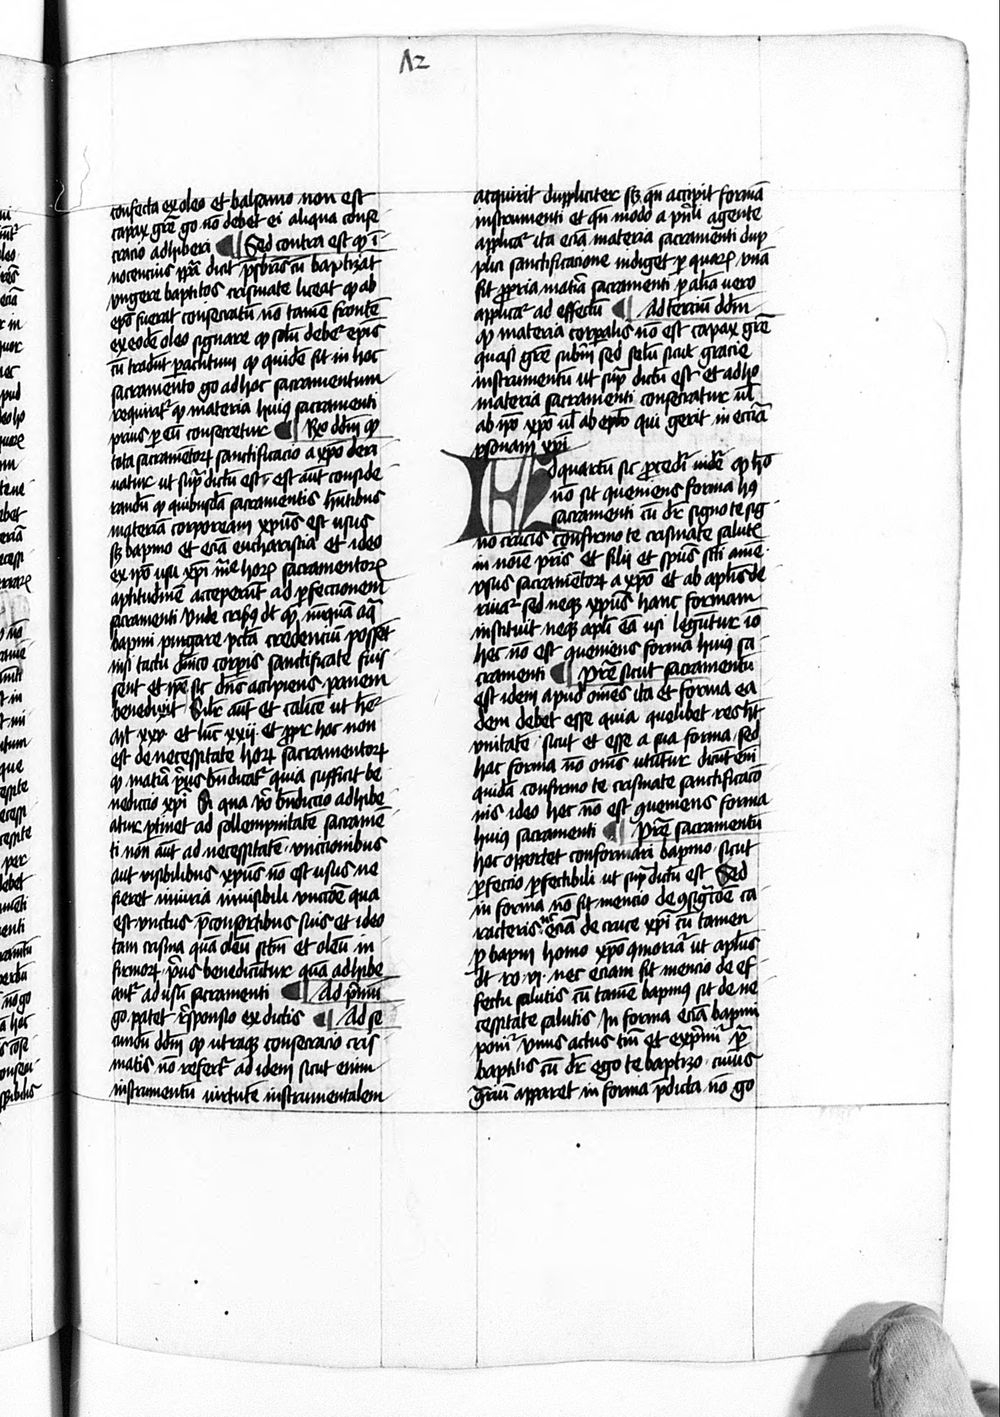 12
confecta ex oleo et balsamo non est
capax grē go nō debet ei aliqua conse
cracio adhiberi Sed contra est qꝫ ī
nocencius pp̄a dicit p̄sbr̄is cū baptizāt
vngere baptitos crismate liceat qꝫ ab
epō fuerat consecratū nō tamē frontē
ex eodē oleo signare qꝫ solū debēt epis
cū tradūt paclitum qꝫ quidē fit in hoc
sacramento go ad hoc sacramentum
requirit᷑ qꝫ materia huiꝰ sacramenti
prius p eū consecretur Rō ddm̄ qꝫ
tota sacramētoꝝ sanctificacio a xp̄o deri
uatur ut sup̄ dictū est est aūt conside
randū qꝫ quibusdā sacramentis hn̄tibus
materiā corpoream xp̄us est usus
sꝫ bapmo et eciā eucharistia et ideo
ex ip̄o usu xp̄i mīe horꝫ sacramentorꝫ
aptitudinē acceperūt ad pfectionem
sacramenti Vnde crisꝰ dt qꝫ nūquā aq̄
bapmi purgare pctā credenciū posset
nisi tactu dn̄ico corpis sanctificate fuis
sent et ip̄e sic dn̄s accipiens panem
benedixit Silr aūt et calice ut het᷑
mt xxv et luc xxij et ppt᷑ hoc non
est de necessitate horꝫ sacramentorꝫ
qꝫ mat̄ia p̄us bn̄dicat᷑ quia sufficit be
nedictio xp̄i Si qua vo bn̄dictio adhibe
atur ptinet ad sollempnitatē sacramē
ti non aūt ad necessitatē vnctionibus
aūt visibilibus xp̄us nō est usus ne
fieret iniuria inuisibili vnctōe qua
est vnctus p̄ consortibus suis et ideo
tam crisma quā oleū sctm̄ et oleū in
firmorꝫ p̄us benedicūtur quā adhibe
ant᷑ ad usū sacramenti Ad p̄mū
go patet r̄sponsio ex dictis Ad se
cundū ddm̄ qꝫ utraqꝫ consecracio cris
matis nō refert᷑ ad idem sicut enim
instrumentū uirtutē instrumentalem
acquirit dupliciter sꝫ qn̄ accipit formā
instrumenti et qn̄ modo a pn̄li agente
applicat᷑ ita eciā materia sacramenti dup
plici sanctificacione indiget p quarꝫ vnā
fit ppria mat̄ia sacramenti p aliā uero
applicat᷑ ad effectū Ad terciū ddm̄
qꝫ materia corpalis nō est capax grē
quasi grē subm̄ sed solū sicut gracie
instrumentū ut sup̄ dictū est et ad ho
materia sacramenti consecratur ul̄
ab ip̄o xp̄o ul̄ ab epō qui gerit in ecc̄ia
psonam xp̄i
Ad quartū sic pcedit᷑ uidet᷑ qꝫ hec
nō sit queniens forma hꝰ
sacramenti cū dr̄ signo te sig
no crucis confirmo te crismate salutꝫ
in noīe pr̄is et filij et spūs scti amē
vsus sacramētorꝫ a xp̄o et ab aplīs de
riuat᷑ sed neqꝫ xp̄us hanc formam
instituit neqꝫ apl̄i eā usi legūtur io
hec nō est queniens forma huiꝰ sa
cramenti Pret̄ sicut sacramentū
est idem apud om̄es ita et forma ea
dem debet esse quia quelibet res hꝫ
vnitatē sicut et esse a sua forma sed
hac forma nō om̄s utūtur dicūt eni
quidā confirmo te crismate sanctificacō
nis ideo hec nō est queniens forma
huiꝰ sacramenti Pret̄ sacramentū
hoc oportet conformari bapmo sicut
pfectio pfectibili ut sup̄ dictū est Sed
in forma nō fit mencio de ꝯsignatōe ca
racteris nec eciā de cruce xp̄i cū tamen
p bapm̄ homo xp̄o qmoriat᷑ ut aplūs
dt ro vi nec eciam fit mencio de ef
fectu salutis cū tamē bapmꝰ sit de ne
cessitate salutis In forma eciā bapmi
ponit᷑ vnus actus tm̄ et expmit᷑ p̄
baptitis cū dr̄ ego te baptizo cuius
q̄riū apparet in forma p̄dicta nō go